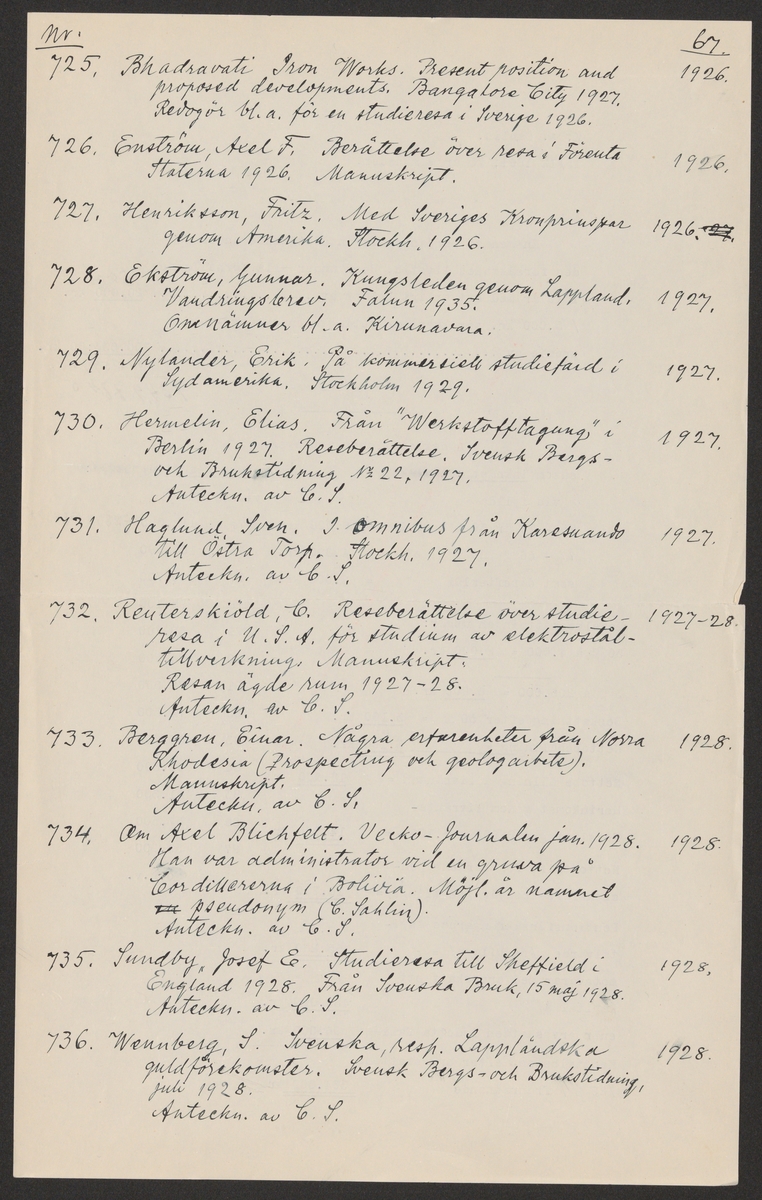 Nr. 67.
725. Bhadravati Iron Works. Present position and 1926.
proposed developments. Bangalore City 1927.
Redogör bl.a. för en studieresa i Sverige 1926.
726. Enström, Axel F. Berättelse över resa i Förenta 1926.
Staterna 1926. Manuskript.
727. Henriksson, Fritz. Med Sveriges Kronprinspar 1926.-27.
genom Amerika. Stockh. 1926.
728. Ekström, Gunnar. Kungsleden genom Lappland. 1927.
Vandringsbrev. Falun 1935.
Omnämner bl.a. Kirunavara.
729. Nylander, Erik. På kommersiell studiefärd i 1927.
Sydamerika. Stockholm 1929.
730. Hermelin, Elias. Från "Werkstofftagung" i 1927.
Berlin 1927. Reseberättelse. Svensk Bergs-
och Brukstidning No 22, 1927.
Anteckn. av C. S.
731. Haglund, Sven. I omnibus från Karesuando 1927.
till Östra Torp. Stockh. 1927.
Anteckn. av C. S.
732. Reuterskiöld, C. Reseberättelse över studie- 1927-28.
resa i U.S.A. för studium av elektrostål-
tillverkning. Manuskript.
Resan ägde rum 1927-28.
Anteckn. av C. S.
733. Berggren, Einar. Några erfarenheter från Norra 1928.
Rhodesia (Prospecting och geologarbete).
Manuskript.
Anteckn. av C. S.
734. Om Axel Blichfelt. Vecko-Journalen jan. 1928. 1928.
Han var administrator vid en gruva på
Cordillererna i Bolivia. Möjl. är namnet
pseudonym (C. Sahlin).
Anteckn. av C. S.
735. Sundby, Josef E. Studieresa till Sheffield i 1928.
England 1928. Från Svenska Bruk, 15 maj 1928.
Anteckn. av C. S.
736. Wennberg, S. Svenska, resp. Lappländska 1928.
guldförekomster. Svensk Bergs- och Brukstidning,
juli 1928.
Anteckn. av C. S.